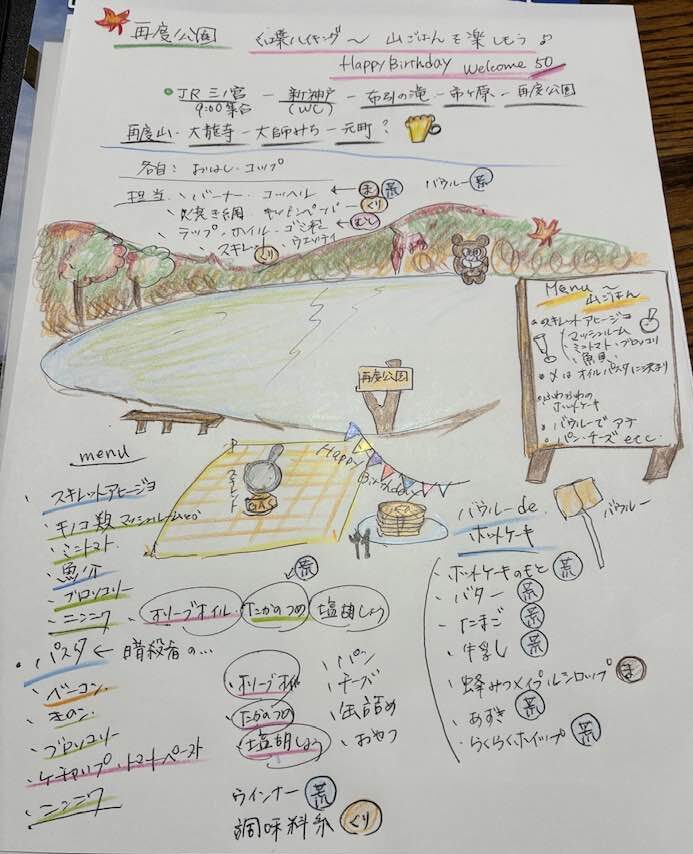 再度公園 紅葉ハイキング〜 山ごはんを楽しもう♪
Happy Birthday Welcome 50
JR三ノ宮 ー 新神戸 ー 布引の滝 ー 市ヶ原 ー 再度公園
9:00集合 (WC)
再度山・大龍寺 ー 大師みち ー 元町?
各自: おはし・コップ
担当 、バーナー・コッヘル ← ま 荒 バウルー 荒
、炭焼き網・キッチンペーパー くり
、ラップ・ホイル・ゴミ袋 ← むし
、スキレット くり ウエッティ
Menu〜
山ごはん
・スキレットアヒージョ
マッシュルーム
ミニトマト・ブロッコリ
魚貝
・〆はオイルパスタに決まり
・ふわふわの
ホットケーキ
・バウルーで
・パン・チーズ etc
再度公園
Happy
Birthday
menu
、スキレットアヒージョ
、キノコ類 マッシュルームとか
、ミニトマト
、魚介
、ブロッコリー
、ニンニク オリーブオイル・たかのつめ 塩胡しょう 荒
・パスタ ← 暗殺者の…
、ベーコン
、きのこ
、ブロッコリー
、ケチャップ・トマトペースト
、ニンニク
オリーブオイル
たかのつめ
塩胡しょう
、パン
、チーズ
、缶詰め
、おやつ
ウインナー 荒
調味料系 くり
バウルー de
ホットケーキ
バウルー
、ホットケーキのもと 荒
、バター 荒
、たまご 荒
、牛乳 荒
、蜂みつ・メイプルシロップ ま
、あずき 荒
、らくらくホイップ 荒